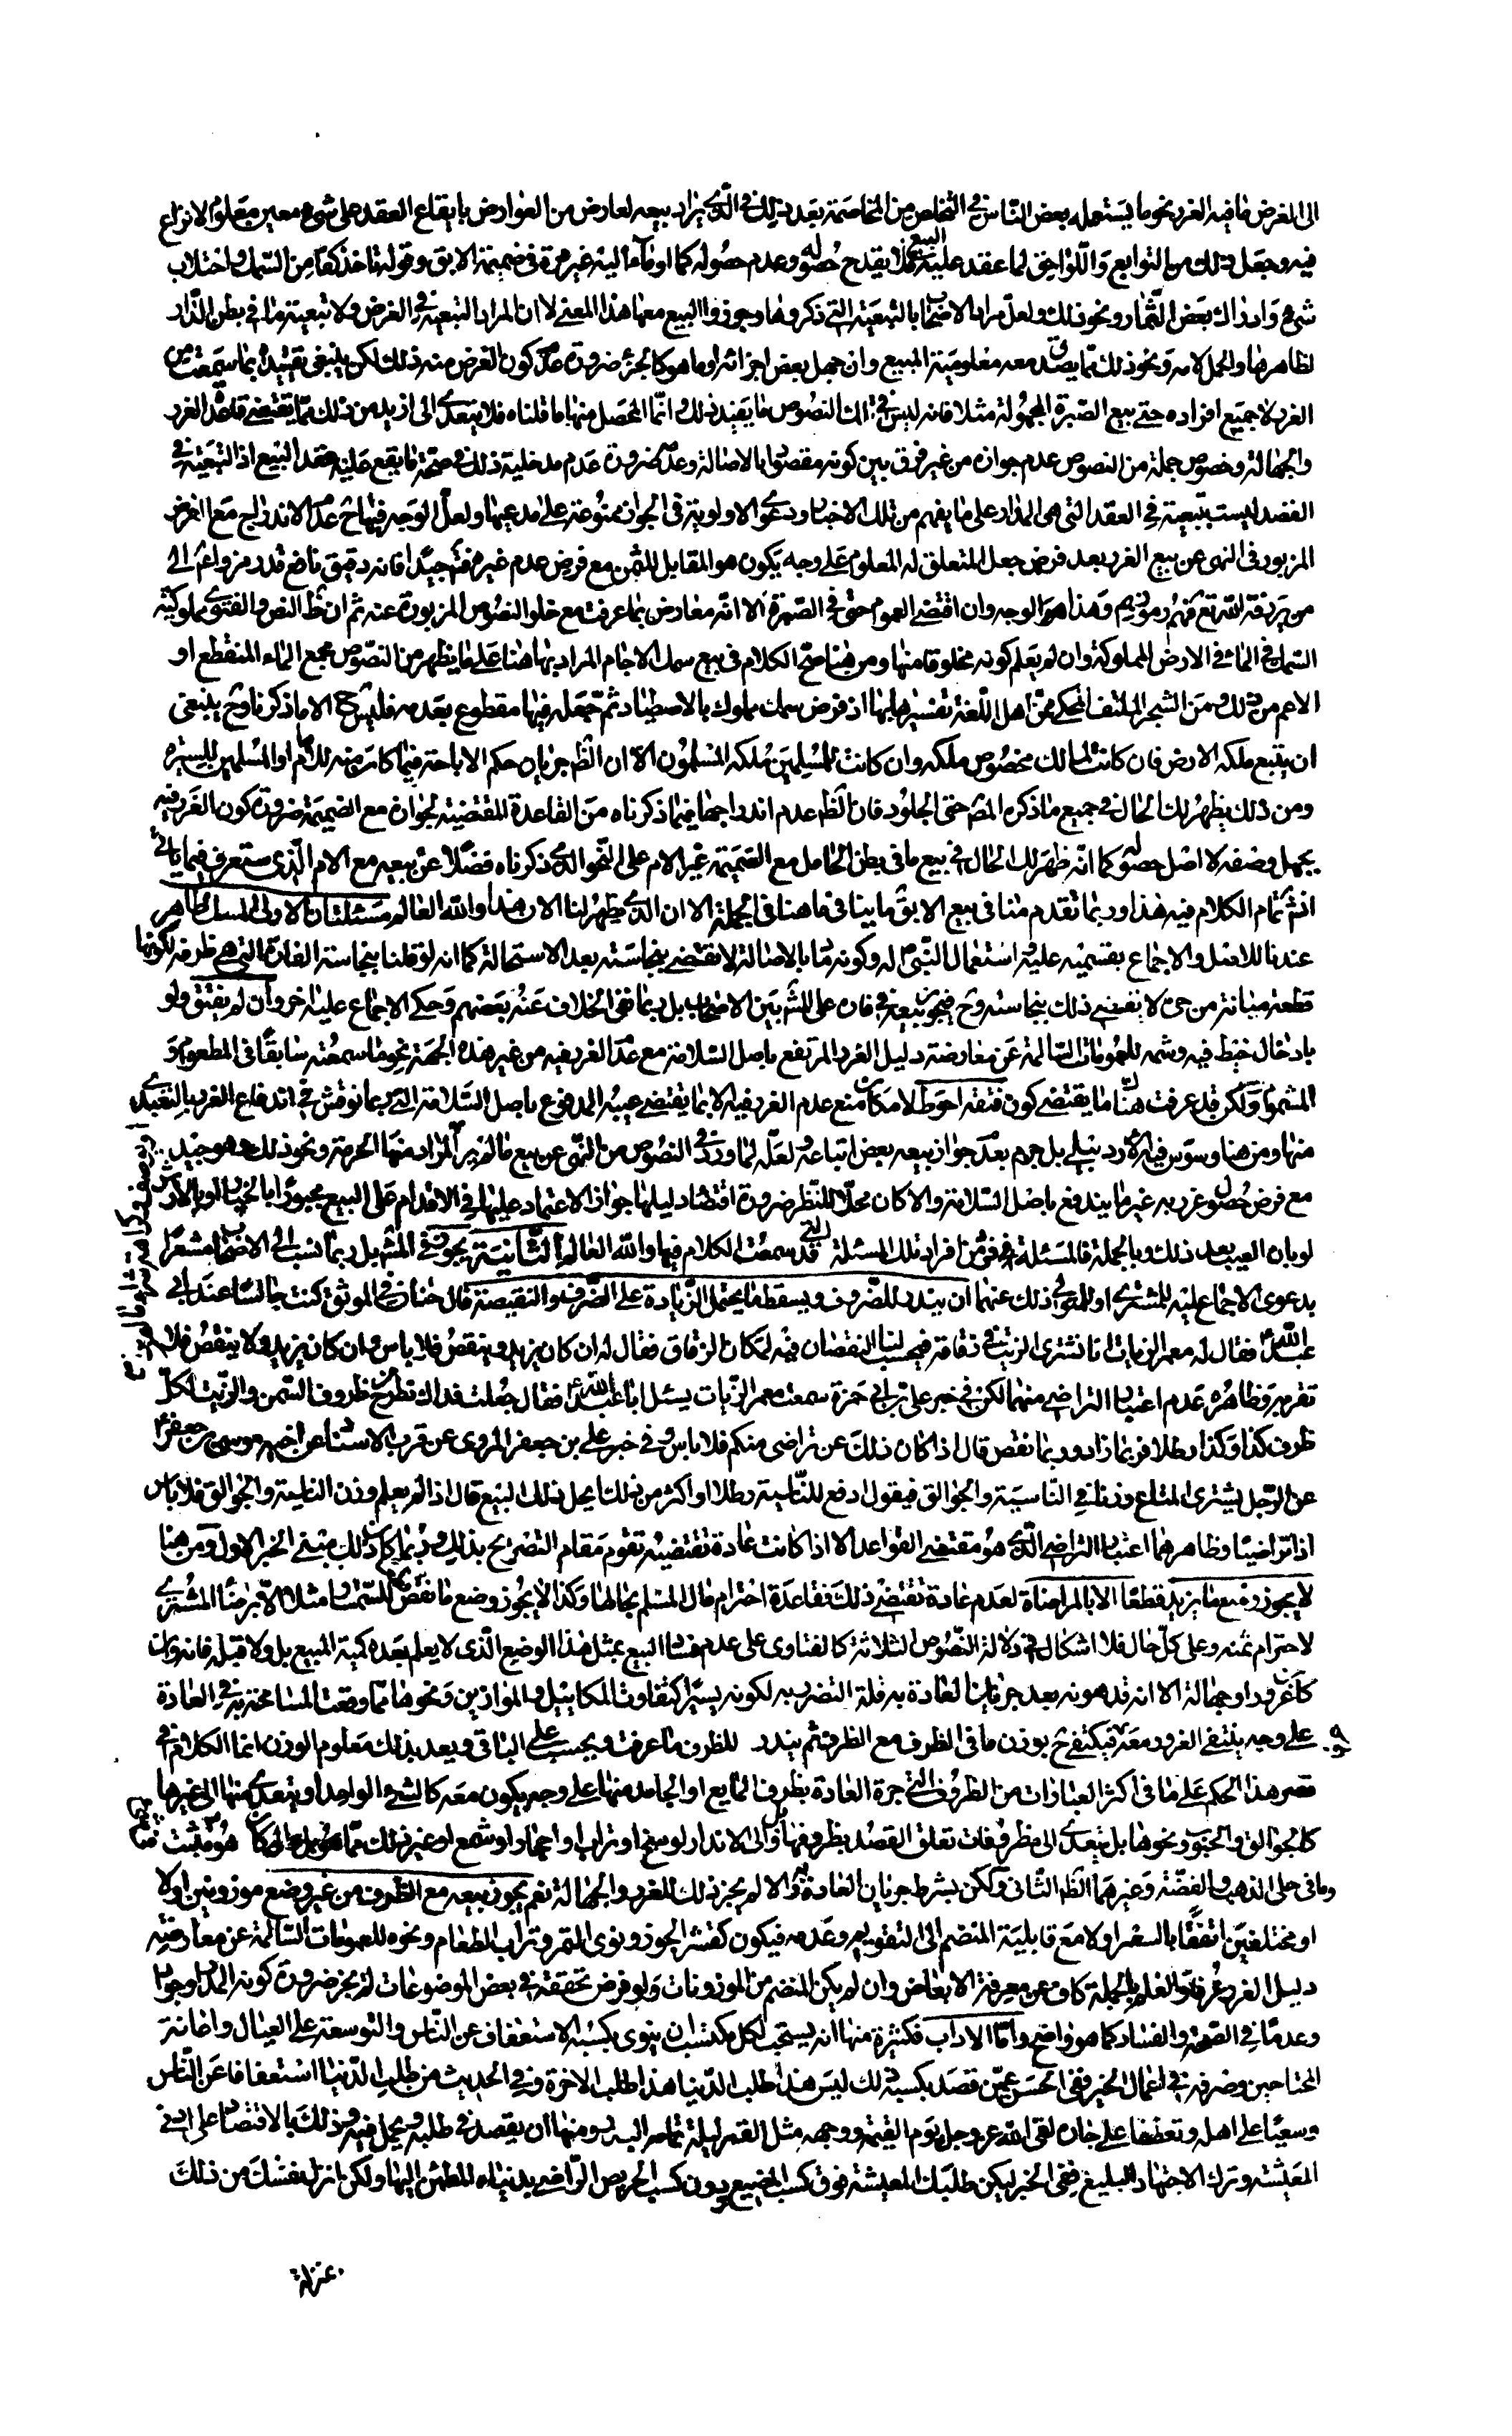 الى الغرض ما فيه الغرر نحو ما يستعمله بعض الناس في التخلص من المخاصمة بعد ذلك في الذي يراد بيعه لعارض من العوارض بايقاع العقد على شيء معين معلوم لا نزاع
فيه وجعل ذلك من التوابع واللواحق لما عقد عليه البيع فلا يقدح حصوله وعدم حصوله كما اومأ اليه غير مرة في ضميمة الابق وقوله تاخذ كفا من السمك واختلاب
شيء وادراك بعض الثمار ونحو ذلك ولعل مراد الاصحاب بالتبعية التي ذكروها وجوزوا البيع معها هذا المعنى لا ان المراد التبعية في الغرض ولا تبعية ما في بطن الدار
لظاهرها والحمل لامه ونحو ذلك مما يصدق معه معلومية المبيع وان جهل بعض اجزائه او ما هو كالجزء ضرورة عدم كون الغرض منه ذلك لكن ينبغي تقييده بما سمعت من
الغرر لا جميع افراده حتى بيع الصبرة المجهولة مثلا فانه ليس في تلك النصوص ما يفيد ذلك وانما المحصل منها ما قلناه فلا يتعدى الى ازيد من ذلك مما يقتضي قاعدة الغرر
والجهالة وخصوص جملة من النصوص عدم جوازه من غير فرق بين كونه مقصودا بالاصالة وعدمه ضرورة عدم مدخلية ذلك في صحة ما يقع عليه عقد البيع اذ التبعية في
القصد ليست بتبعية في العقد التي هي المدار على ما يفهم من تلك الاخبار ودعوى الاولوية في الجواز ممنوعة على مدعيها ولعل الوجه فيها ح عدم الاندراج مع الفرض
المزبور في النهي عن بيع الغرر بعد فرض جعل المتعلق له المعلوم على وجه يكون هو المقابل للثمن مع فرض عدم غيره فتأمل جيدا فانه دقيق نافع قد رمزوا غير
من يرزقه الله تع فهم رموزهم وهذا هو الوجه وان اقتضى العموم حتى في الصبرة الا انه معارض بما عرفت مع خلو النصوص المزبورة عنه ثم ان ظ النص والفتوى مملوكية
السمك في الماء في الارض المملوكة وان لم يعلم كونه مخلوقا منها ومن هنا صح الكلام في بيع سمك الاجام المراد بها هنا على ما يظهر من النصوص مجمع الماء المنقطع او
الاعم من ذلك ومن الشجر الملتف المحكي عن اهل اللغة تفسيرها بها اذ فرض سمك مملوك بالاصطياد ثم جعله فيها مقطوع بعدمه فليس ح الا ما ذكرنا وح ينبغي
ان يتبع ملكه الارض فان كانت لمالك مخصوص ملكه وان كانت للمسلمين ملكه المسلمون الا ان الظ جريان حكم الاباحة فيما كان منه للامام او المسلمين للسيرة
ومن ذلك يظهر لك الحال في جميع ما ذكره المص حتى الجلود فان الظ عدم اندراجها فيما ذكرناه من القاعدة المقتضية لجوازه مع الضميمة ضرورة كون الغرر فيه
بجهل وصفه لا اصل حصوله كما انه ظهر لك الحال في بيع ما في بطن الحامل مع الضميمة غير الام على النحو الذي ذكرناه فضلا عن بيعه مع الام الذي ستعرف فيما ياتي
انش تمام الكلام فيه هذا وربما تقدم منا في بيع الابق ما ينافي ما هنا في الجملة الا ان الذي يظهر لنا الان هذا والله العالم مسئلتان الاولى المسك طاهر
عندنا للاصل والاجماع بقسميه عليه استعمال النبي ص له وكونه دما بالاصالة لا يقتضي بنجاسته بعد الاستحالة كما انه لو قلنا بنجاسة الفارة التي هي ظرفه لكونها
قطعة مبانة من حي لا يقتضي ذلك بنجاسته وح فيجوز بيعه في فاره على المش بين الاصحاب بل ربما نفي الخلاف عنه بعضهم وحكي الاجماع عليه اخر وان لم يفتق ولو
بادخال خيط فيه وشمه للعمومات السالمة عن معارضة دليل الغرر المرتفع باصل السلامة مع عدم الغرر فيه من غير هذه الجهة نحو ما سمعته سابقا في المطعوم و
المشموم ولكن قد عرفت هناك ما يقتضي كون فتقه احوط لامكان منع عدم الغرر فيه الا بما يقتضي عيبه المدفوع باصل السلامة التي ربما نوقش في اندفاع الغرر بها لتعبد
منها ومن هنا وسوس فيه الاردبيلي بل جزم بعدم جواز بيعه بعض اتباعه ولعله لما ورد في النصوص من النهي عن بيع ما لم ير المراد منها الحرمة ونحو ذلك وهو جيد
مع فرض حصول غرر به غير ما يندفع باصل السلامة والا كان محلا للنظر ضرورة اقتضاء دليلها جواز الاعتماد عليها في الاقدام على البيع مجبورا بالخيار او بالارش
لو بان العيب بعد ذلك وبالجملة فالمسئلة فرد من افراد تلك المسئلة التي قد سمعت الكلام فيها والله العالم الثانية يجوز في المش بل ربما نسب الى الاصحاب مشعرا
بدعوى الاجماع عليه للمشتري او المتولي ذلك عنهما ان يندر للظروف ويسقط ما يحتمل الزيادة على الظروف والنقيصة قال حنان في الموثق كنت جالسا عند ابي
عبد الله ع فقال له معمر الزيات انا نشتري الزيت في زقاقه فيحسب لنا النقصان فيه لمكان الزقاق فقال له ان كان يزيد وينقص فلا باس وان كان يزيد ولا ينقص فلا
تقربه وظاهره عدم اعتبار التراضي منهما لكن في خبر علي بن ابي حمزة سمعت معمر الزيات يسئل ابا عبد الله ع فقال جعلت فداك نطرح ظروف السمن والزيت لكل
ظرف كذا وكذا رطلا فربما زاد وربما نقص قال اذا كان ذلك عن تراضي منكم فلا باس وفي خبر علي بن جعفر المروي عن قرب الاسناد عن اخيه موسى بن جعفر ع
عن الرجل يشتري المتاع وزنا في الناسية والجوالق فيقول ادفع للناسية رطلا او اكثر من ذلك ايحل ذلك البيع قال اذا لم يعلم وزن الناسية والجوالق فلا باس
اذا تراضيا وظاهرهما اعتبار التراضي الذي هو مقتضى القواعد الا اذا كانت عادة تقتضيه تقوم مقام التصريح بذلك وربما كان ذلك مبنى الخبر الاول ومن هنا
لا يجوز وضع ما يزيد قطعا الا بالمراضاة لعدم عادة تقتضي ذلك فقاعدة احترام مال المسلم بحالها وكذا لا يجوز وضع ما نقص كك للسمسار مثلا الا برضا المشتري
لاحترام ثمنه وعلى كل حال فلا اشكال في دلالة النصوص الثلاثة كالفتاوى على عدم فساد البيع بمثل هذا الوضع الذي لا يعلم بعده كمية المبيع بل ولا قبله فانه وان
كان غررا وجهالة الا انه قد هونه بعد جريان العادة به قلة التضرر به لكونه يسيرا كتفاوت المكاييل والموازين ونحوها مما وقعت المسامحة به في العادة
على وجه ينتفي الغرر معه فيكتفى ح بوزن ما في الظرف مع الظرف ثم يندر للظرف ما عرفت ويحسب على الباقي ويعد بذلك معلوم الوزن انما الكلام في
قصر هذا الحكم على ما في اكثر العبارات من الظروف التي جرت العادة بظرف المايع او الجامد منها على وجه يكون معه كالشيء الواحد او يتعدى منها الى غيرها
كالجوالق والحبوب ونحوها بل يتعدى الى مظروفات تعلق القصد بظروفها بل والى الاندار لوسخ او تراب او احجار او شمع او غير ذلك مما هو مثبت
وما في حلى الذهب والفضة وغيرهما الظ الثاني ولكن بشرط جريان العادة به والا لم يجز ذلك للغرر والجهالة نعم يجوز بيعه مع الظروف من غير وضع موزونين اولا
او مختلفين اتفقا بالسعر اولا مع قابلية المنضم الى التقويم وعدمه فيكون كقشر الجوز ونوى التمر وتراب الطعام ونحوه للعمومات السالمة عن معارضة
دليل الغرر عرفا والعلم بالجملة كاف عن معرفة الابعاض وان لم يكن المنضم من الموزونات ولو فرض تحققه في بعض الموضوعات لم يجز ضرورة كونه المدار وجودا
وعدما في الصحة والفساد كما هو واضح واما الاداب فكثيرة منها انه يستحب لكل مكتسب ان ينوي بكسبه الاستعفاف عن الناس والتوسعة على العيال واعانة
المحتاجين وصرفه في اعمال الخير ففي الحسن عمن قصد بكسبه ذلك ليس هذا طلب الدنيا هذا طلب الاخرة وفي الحديث من طلب الدنيا استعفافا عن الناس
وسعيا على اهله وتعطفا على جاره لقى الله عز وجل يوم القيمة ووجهه مثل القمر ليلة البدر ومنها ان يقصد في طلبه ويجمل فيه وذلك بالاقتصار على ادنى
المعيشة وترك الاجتهاد البليغ ففي الخبر ليكن طلبك المعيشة فوق كسب المضيع ودون كسب الحريص الراضي بدنياه المطمئن اليها ولكن انزل نفسك من ذلك
بمنزلة